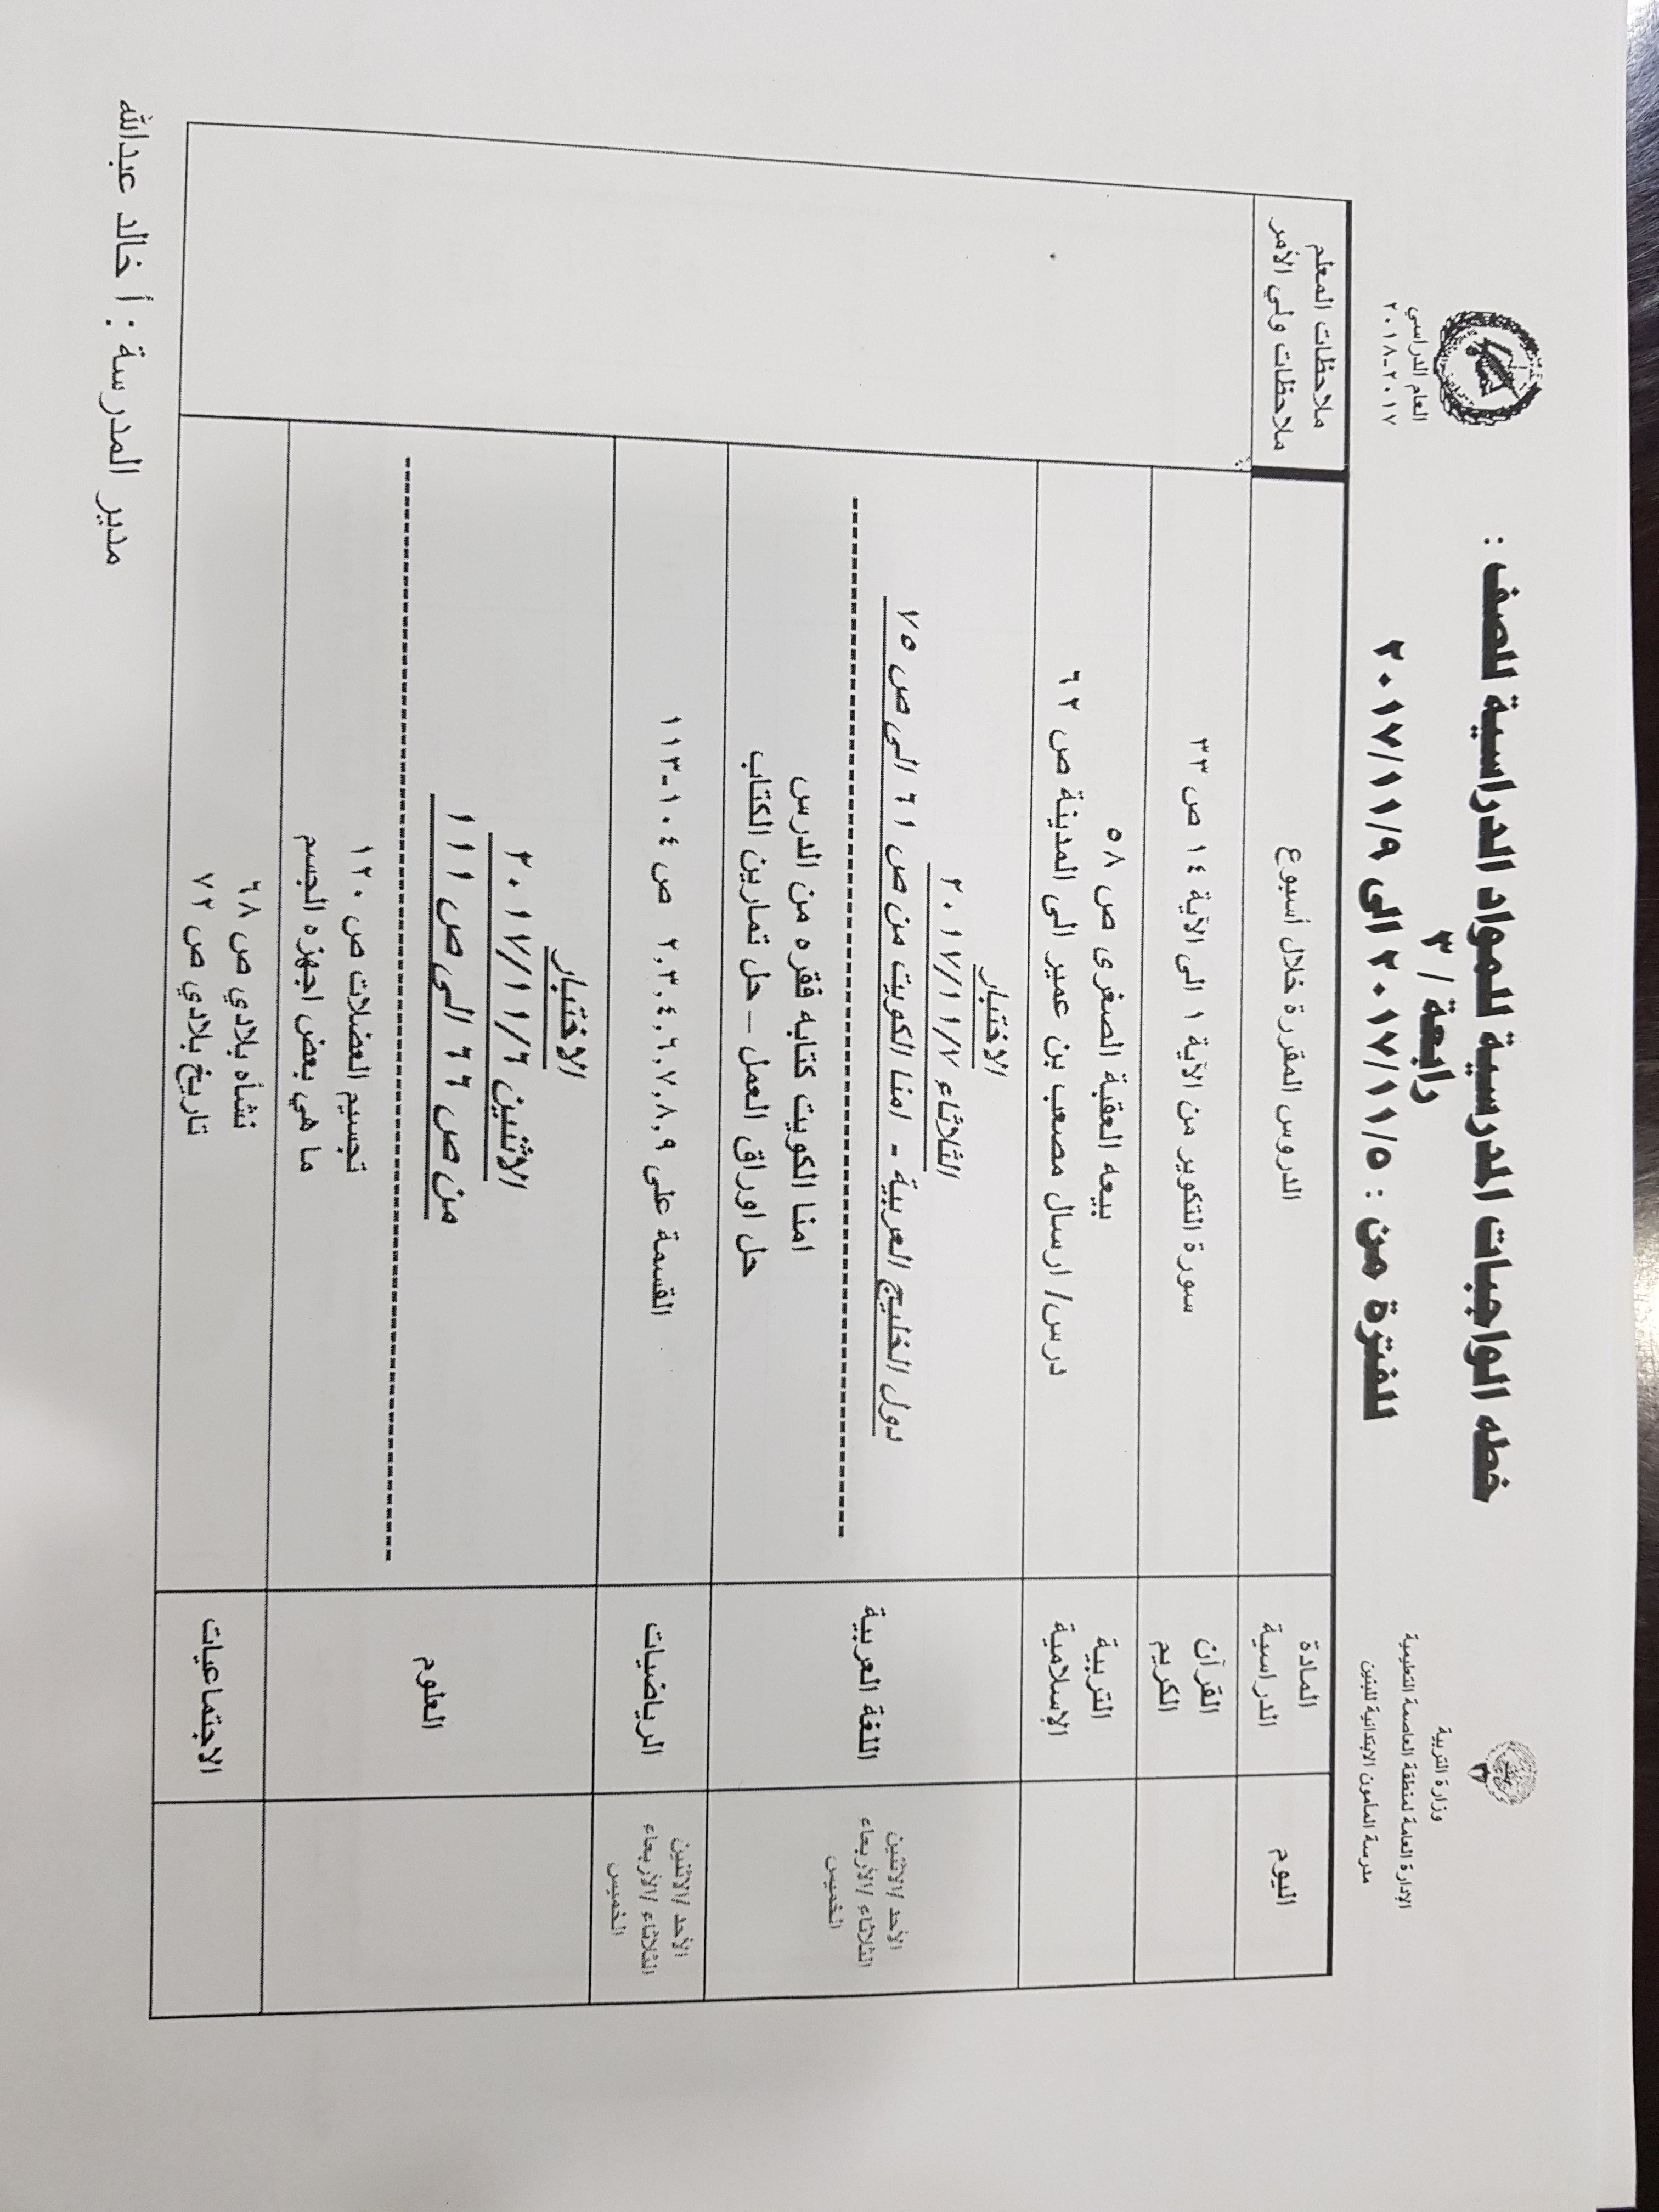 وزارة التربية
الإدارة العامة لمنطقة العاصمة التعليمية
مدرسة المأمون الابتدائية للبنين
خطه الواجبات المدرسية للمواد الدراسية للصف :
رابعة / ٣
للفترة من : ٢٠١٧/١١/٥ الى ٢٠١٧/١١/٩
العام الدراسي
٢٠١٧-٢٠١٨
اليوم
المادة
الدراسية
الدروس المقررة خلال أسبوع
ملاحظات المعلم
ملاحظات ولي الأمر
القرآن
الكريم
سورة التكوير من الآية ١ الى الآية ١٤ ص ٣٣
التربية
الإسلامية
بيعه العقبة الصغرى ص ٥٨
درس/ ارسال مصعب بن عمير الى المدينة ص ٦٢
الأحد /الاثنين
الثلاثاء /الأربعاء
الخميس
اللغة العربية
الاختبار
الثلاثاء ٢٠١٧/١١/٧
دول الخليج العربية - امنا الكويت من ص ٦١ الى ص ٧٥
امنا الكويت كتابه فقره من الدرس
حل اوراق العمل – حل تمارين الكتاب
الأحد /الاثنين
الثلاثاء /الأربعاء
الخميس
الرياضيات
القسمة على ٢,٣,٤,٦,٧,٨,٩ ص ١٠٤-١١٣
العلوم
الاختبار
الاثنين ٢٠١٧/١١/٦
من ص ٦٦ الى ص ١١١
تجسيم العضلات ص ١٢٠
ما هي بعض اجهزه الجسم
الاجتماعيات
نشأه بلادي ص ٦٨
تاريخ بلادي ص ٧٢
مدير المدرسة : أ خالد عبدالله